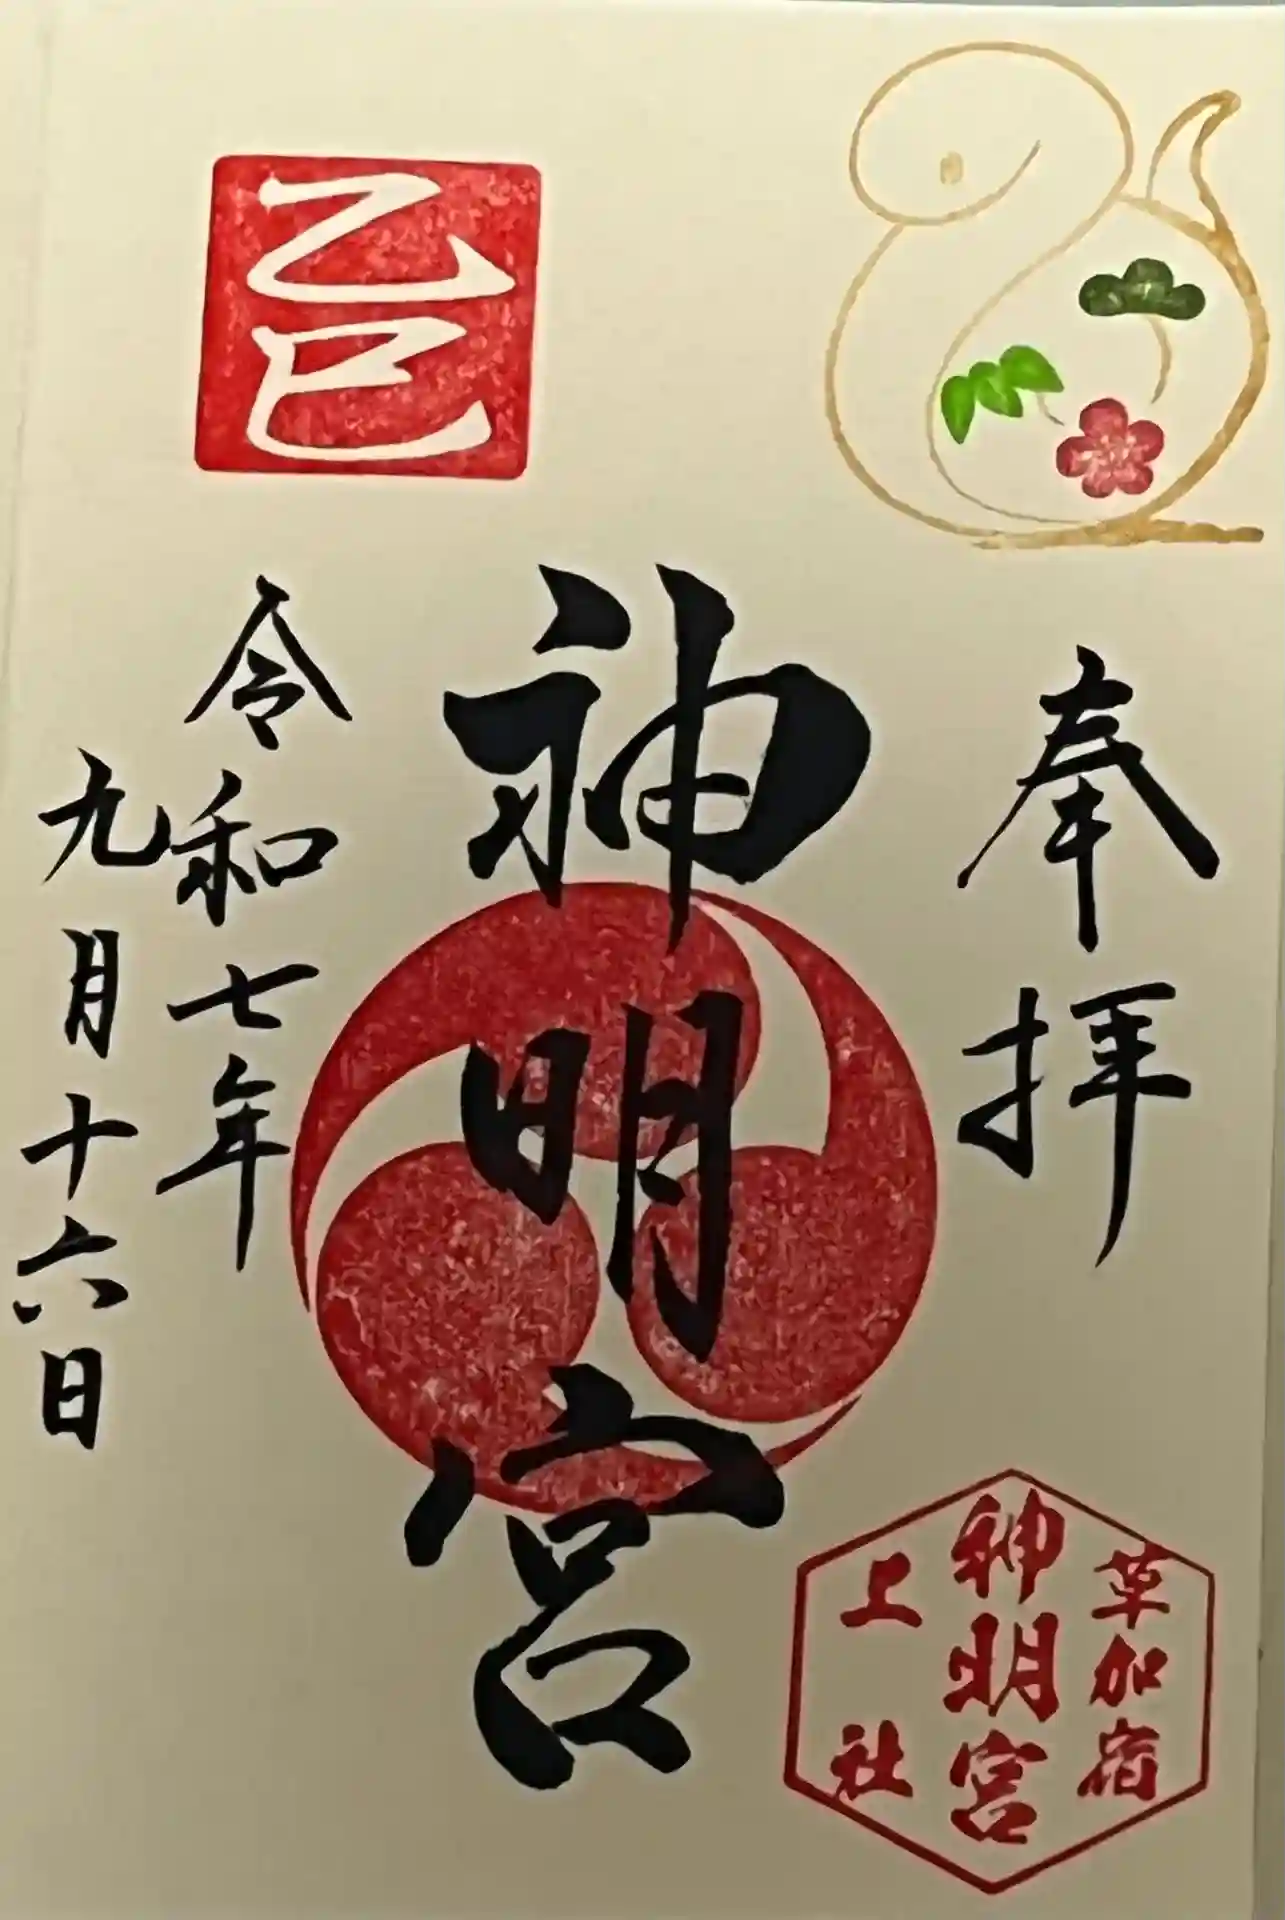 奉拝
神明宮
令和七年
九月十六日
乙巳
草加宿
神明宮
上社